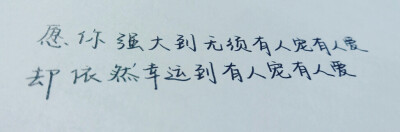 愿你强大到无须有人宠有人爱
却依然幸运到有人宠有人爱